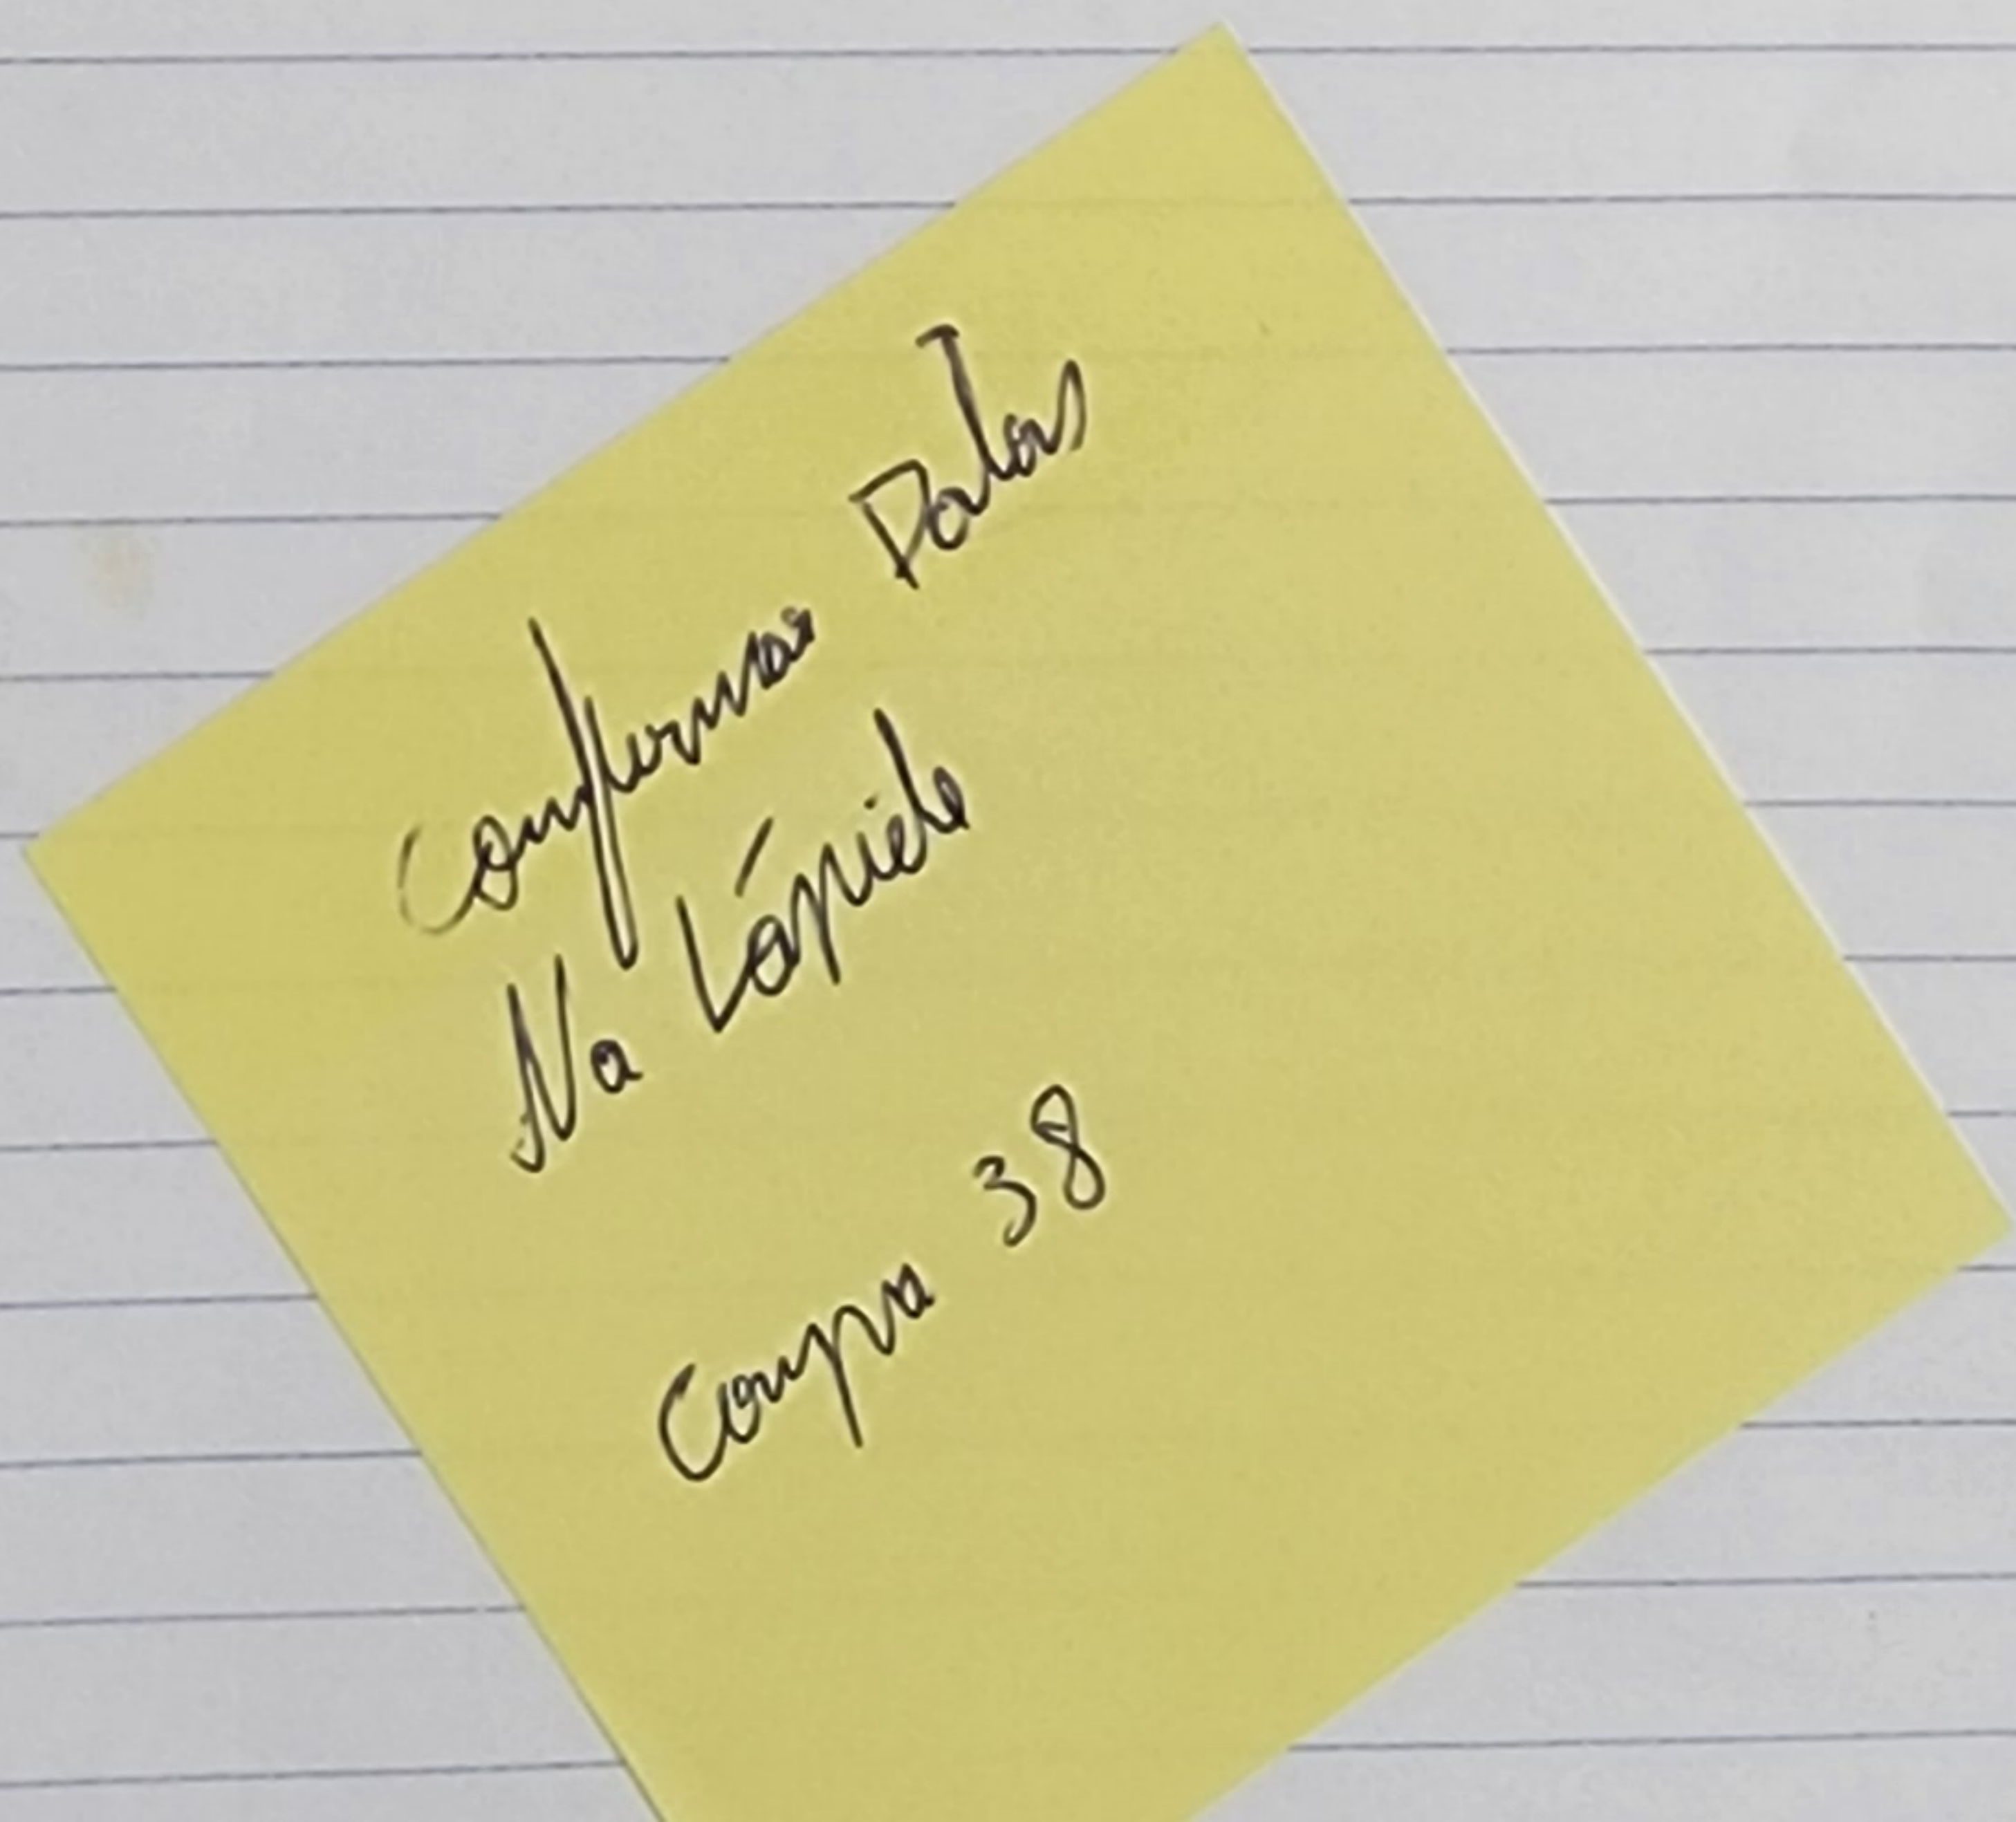 Confirmar Datas
Na Lápide
Compra 38